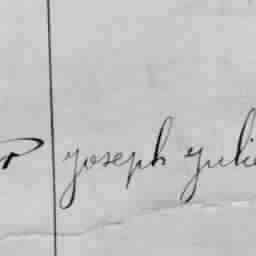 Joseph Julie